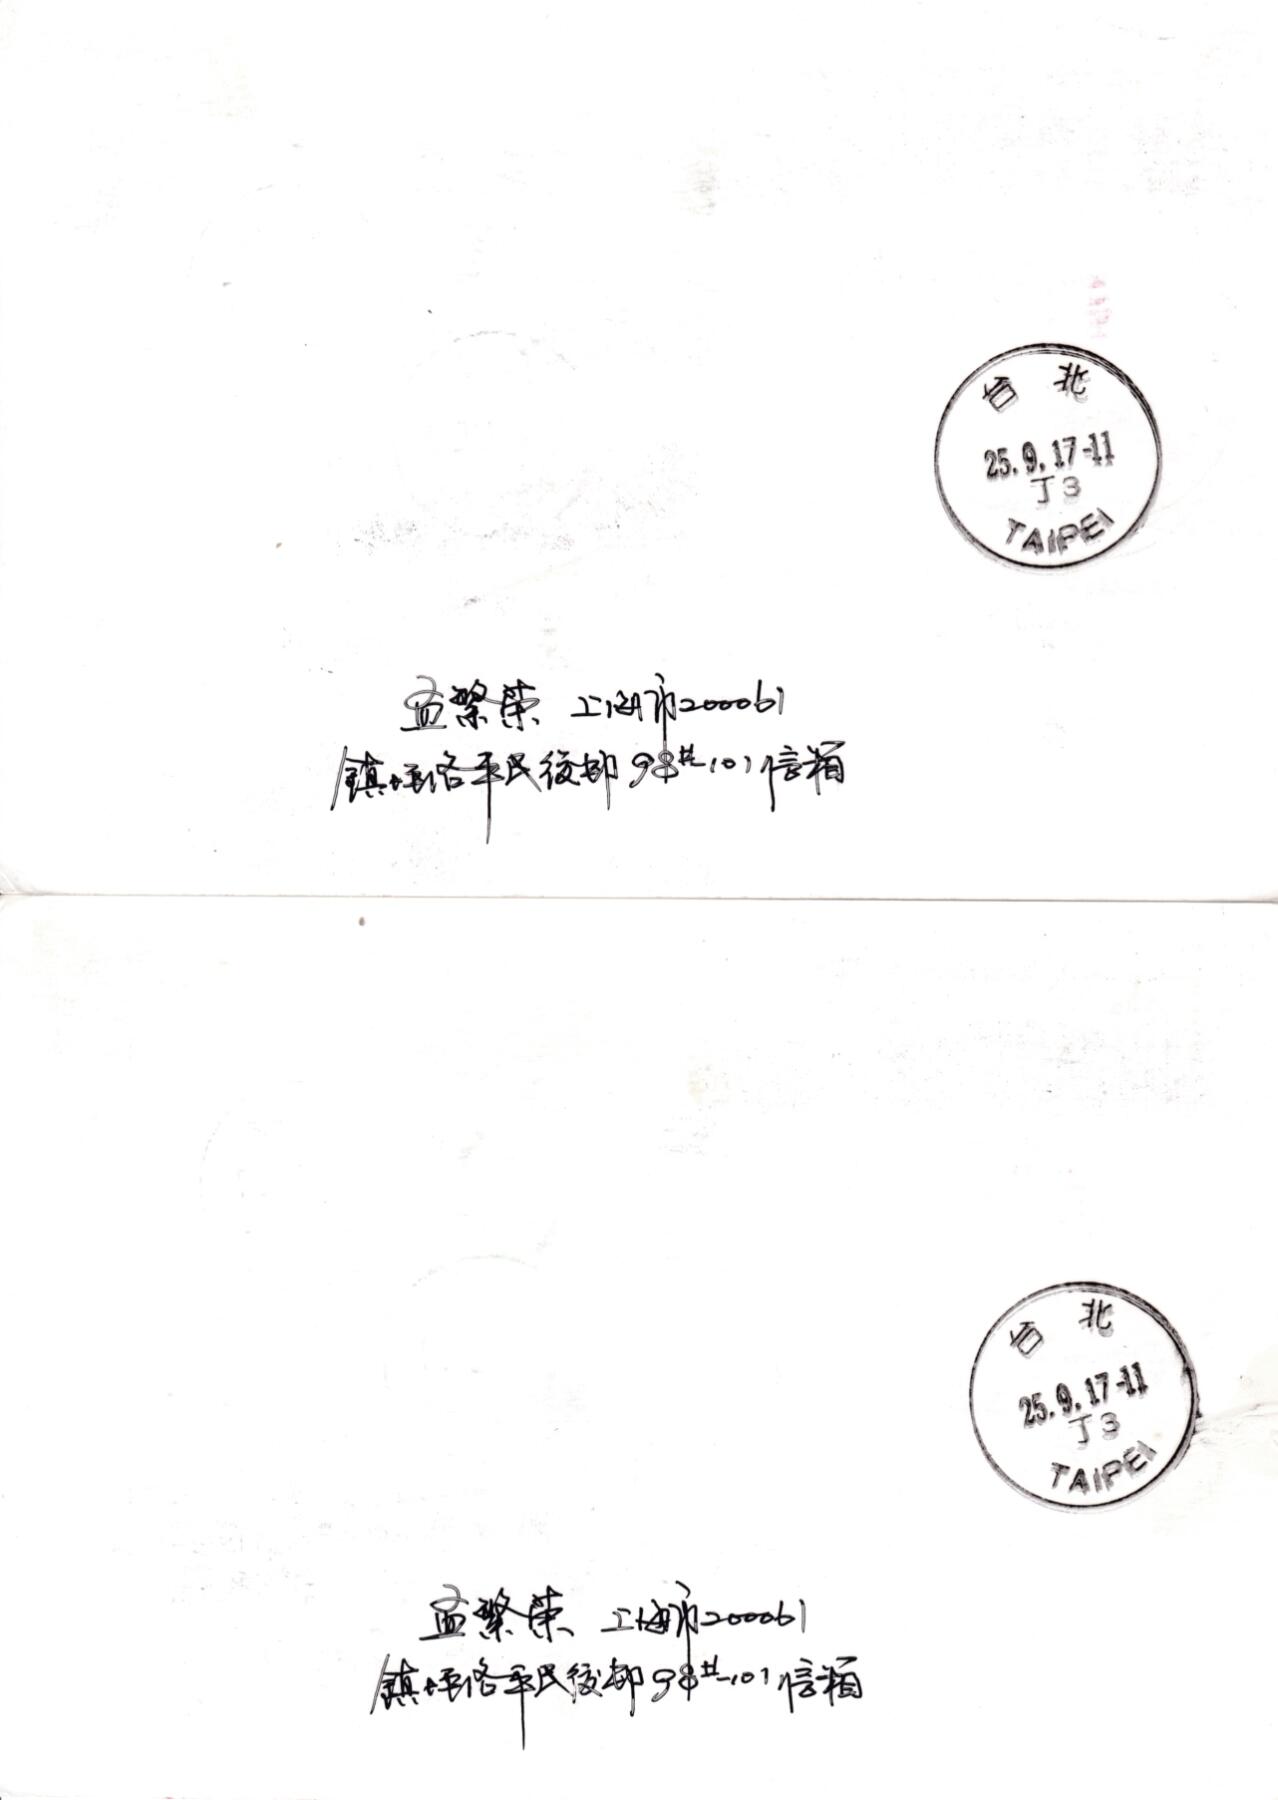 台北
25.9.17-11
丁3
TAIPEI
孟繁荣 上海市200061
鎮坪路平民後邨 98#-101信箱
台北
25.9.17-11
丁3
TAIPEI
孟繁荣 上海市200061
鎮坪路平民後邨 98#-101信箱